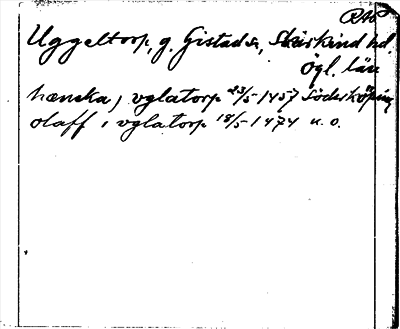 RAP
Uggeltorp, g. Gistads s, Skärkind hd.
Ögl. län
hæneka j vglatorp 23/5 1457 Söderköping
olaff i vglatorp 18/5 1474 u. o.